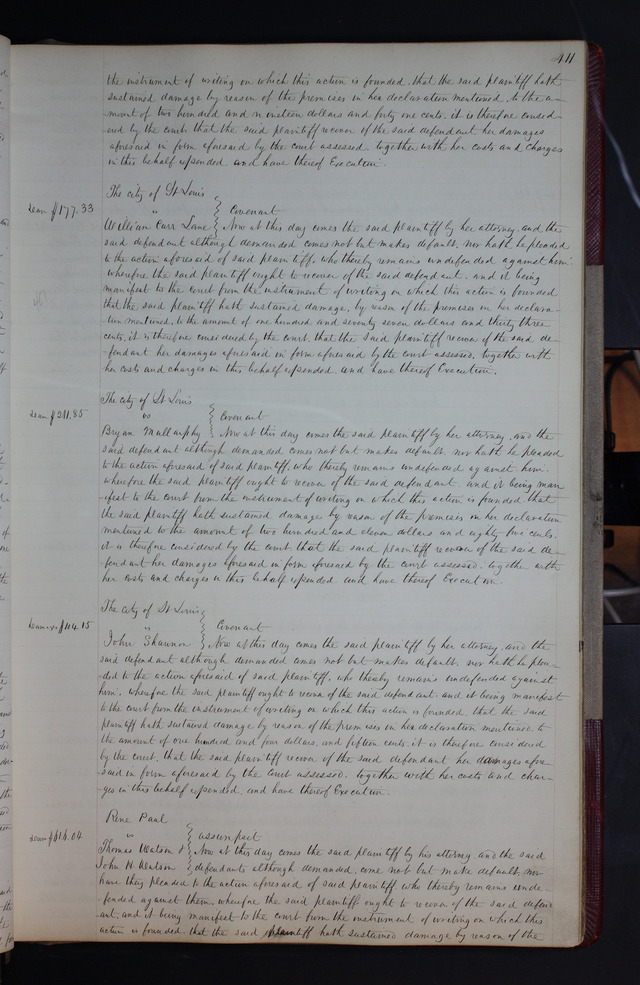 411
the instrument of writing on which this action is founded, that the said plaintiff hath
sustained damage by reason of the premises in her declaration mentioned, to the a-
mount of two hundred and nineteen dollars and forty one cents, it is therefore consid-
ered by the court that the said plaintiff recover of the said defendant her damages
aforesaid in form aforesaid by the court assessed, together with her costs and charges
in this behalf expended and have thereof Execution.
The city of St Louis
Dam $177.33 vs Covenant
William Carr Lane Now at this day comes the said plaintiff by her attorney, and the
said defendant although demanded comes not but makes default, nor hath he pleaded
to the action aforesaid of said plaintiff, who thereby remains undefended against him
wherefore the said plaintiff ought to recover of the said defendant, and it being
manifest to the court from the instrument of writing on which this action is founded
that the said plaintiff hath sustained damage, by reason of the premises in her declara-
tion mentioned, to the amount of one hundred and seventy seven dollars and thirty three
cents, it is therefore considered by the court, that the said plaintiff recover of the said de-
fendant her damages aforesaid in form aforesaid by the court assessed, together with
her costs and charges in this behalf expended, and have thereof Execution.
The city of St Louis
Dam $211.85 vs Covenant
Bryan Mullanphy Now at this day comes the said plaintiff by her attorney, and the
said defendant although demanded comes not but makes default, nor hath he pleaded
to the action aforesaid of said plaintiff, who thereby remains undefended against him,
wherefore the said plaintiff ought to recover of the said defendant and it being man
ifest to the court from the instrument of writing on which this action is founded that
the said plaintiff hath sustained damage by reason of the premises in her declaration
mentioned to the amount of two hundred and eleven dollars and eighty five cents,
it is therefore considered by the court that the said plaintiff recover of the said de-
fendant her damages aforesaid in form aforesaid by the court assessed, together with
her costs and charges in this behalf expended and have thereof Execution
The city of St Louis
$104.15 vs Covenant
John Shannon Now at this day comes the said plaintiff by her attorney, and the
said defendant although demanded comes not but makes default, nor hath he plea-
ded to the action aforesaid of said plaintiff, who thereby remains undefended against
him, wherefore the said plaintiff ought to recover of the said defendant, and it being manifest
to the court from the instrument of writing on which this action is founded, that the said
plaintiff hath sustained damage by reason of the premises in her declaration mentioned to
the amount of one hundred and four dollars, and fifteen cents, it is therefore considered
by the court, that the said plaintiff recover of the said defendant her damages afore-
said in form aforesaid by the court assessed, together with her costs and char-
ges in this behalf expended, and have thereof Execution.
Rene Paul
vs assumpsit
Thomas Watson & Now at this day comes the said plaintiff by his attorney and the said
John H. Watson defendants although demanded, come not but make default, nor
have they pleaded to the action aforesaid of said plaintiff who thereby remains unde-
fended against them, wherefore the said plaintiff ought to recover of the said defend-
ant, and it being manifest to the court from the instrument of writing on which this
action is founded, that the said plaintiff hath sustained damage by reason of the